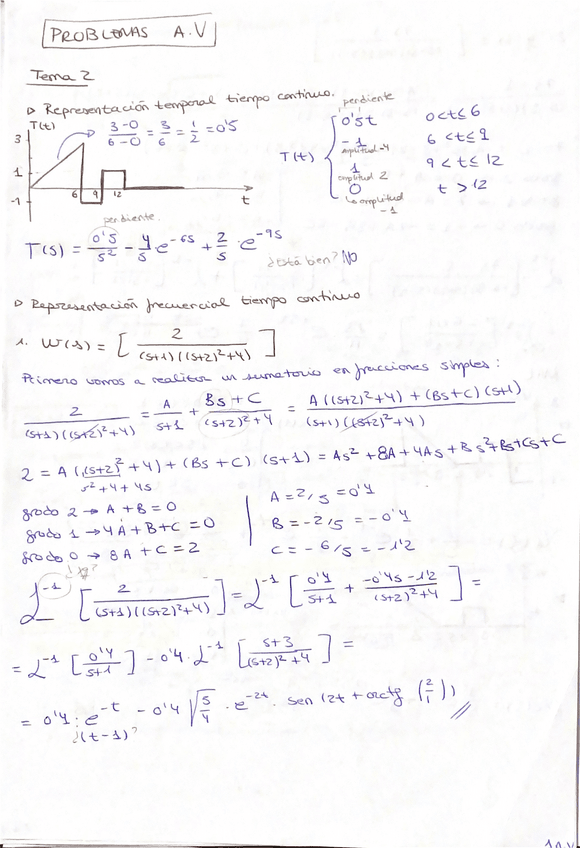 PROBLEMAS A.V
Tema 2
▷ Representación temporal tiempo continuo.
T(t)
3
1
-1
6 9 12
t
3-0/6-0 = 3/6 = 1/2 = 0'5
T(t) {
pendiente
0'5t 0<t≤6
-1 6<t≤9
amplitud -4
1 9<t≤12
amplitud 2
0 t>12
↳ amplitud -1
pendiente.
T(s) = 0'5/s² - 4/s e^-6s + 2/s · e^-9s
¿está bien? NO
▷ Representación frecuencial tiempo continuo
1. W(s) = [ 2/(s+1)((s+2)²+4) ]
Primero vamos a realizar un sumatorio en fracciones simples:
2/(s+1)((s+2)²+4) = A/s+1 + Bs+C/(s+2)²+4 = A((s+2)²+4)+(Bs+C)(s+1)/(s+1)((s+2)²+4)
2 = A((s+2)²+4)+(Bs+C)(s+1) = As²+8A+4As+Bs²+Bs+Cs+C
s²+4+4s
grado 2 → A+B=0
grado 1 → 4A+B+C=0
grado 0 → 8A+C=2
A=2/5=0'4
B=-2/5=-0'4
C=-6/5=-1'2
ℒ^-1 [ 2/(s+1)((s+2)²+4) ] = ℒ^-1 [ 0'4/s+1 + -0'4s-1'2/(s+2)²+4 ] =
= ℒ^-1 [ 0'4/s+1 ] - 0'4·ℒ^-1 [ s+3/(s+2)²+4 ] =
= 0'4·e^-t - 0'4 √5/4 · e^-2t · sen(2t+arctg(2/1)) //
¿(t-1)?